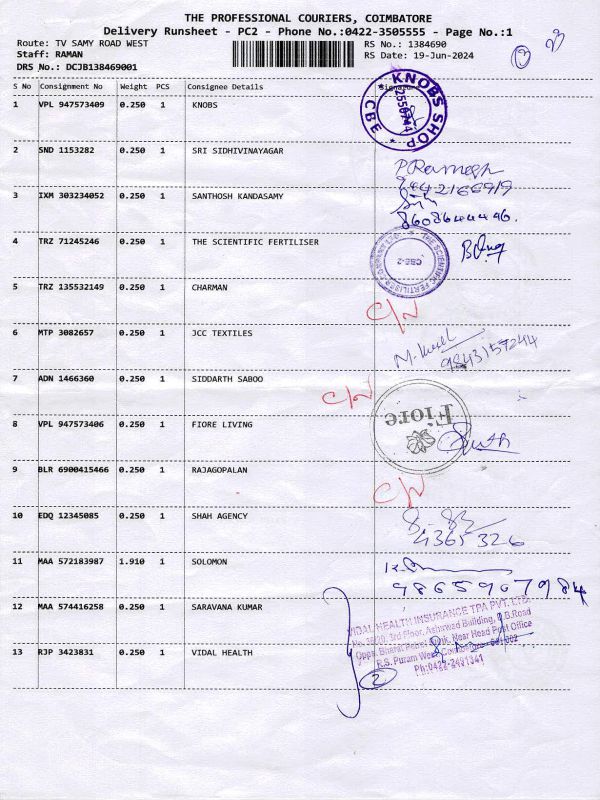 THE PROFESSIONAL COURIERS, COIMBATORE
Delivery Runsheet - PC2 - Phone No.:0422-3505555 - Page No.:1
Route: TV SAMY ROAD WEST
RS No.: 1384690
Staff: RAMAN
RS Date: 19-Jun-2024
DRS No.: DCJB138469001
S No Consignment No Weight PCS Consignee Details Signature
1 VPL 947573409 0.250 1 KNOBS
KNOBS SHOP CBE
2 SND 1153282 0.250 1 SRI SIDHIVINAYAGAR
P Ramesh
3 IXM 303234052 0.250 1 SANTHOSH KANDASAMY
4 TRZ 71245246 0.250 1 THE SCIENTIFIC FERTILISER
THE SCIENTIFIC FERTILISER CBE-2
5 TRZ 135532149 0.250 1 CHARMAN
6 MTP 3082657 0.250 1 JCC TEXTILES
9843157244
7 ADN 1466360 0.250 1 SIDDARTH SABOO
8 VPL 947573406 0.250 1 FIORE LIVING
Fiore
9 BLR 6900415466 0.250 1 RAJAGOPALAN
10 EDQ 12345085 0.250 1 SHAH AGENCY
4365326
11 MAA 572183987 1.910 1 SOLOMON
9865907984
12 MAA 574416258 0.250 1 SARAVANA KUMAR
VIDAL HEALTH INSURANCE TPA PVT. LTD.
No. 36/20, 3rd Floor, Ashirwad Building, D.B.Road
Opps. Bharat Petrol Bunk, Near Head Post Office
R.S. Puram West, Coimbatore - 641 002
Ph:0422-2491341
13 RJP 3423831 0.250 1 VIDAL HEALTH
2